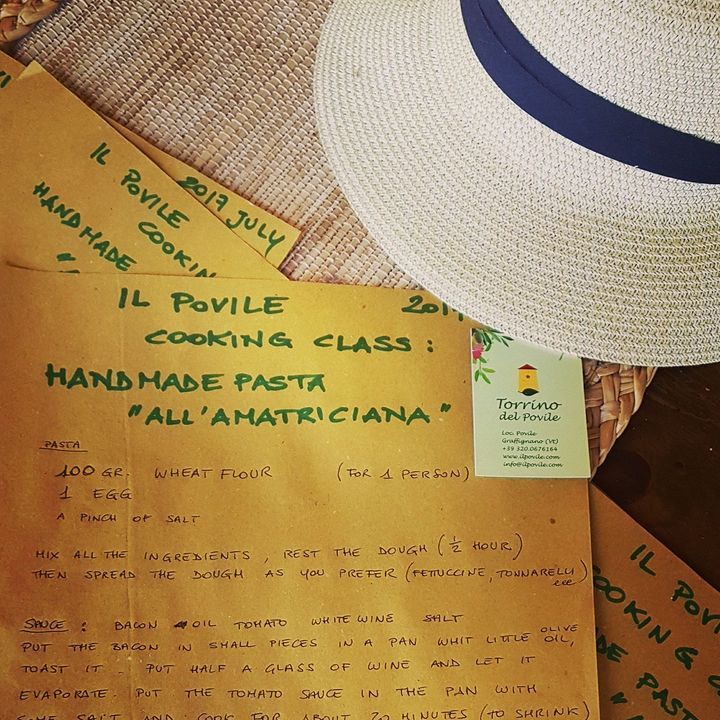 IL POVILE
2017 JULY
COOKIN
HANDMADE
IL POVILE 201
COOKING CLASS :
HANDMADE PASTA
"ALL'AMATRICIANA"
PASTA
100 GR. WHEAT FLOUR (FOR 1 PERSON)
1 EGG
A PINCH OF SALT
MIX ALL THE INGREDIENTS, REST THE DOUGH (1/2 HOUR)
THEN SPREAD THE DOUGH AS YOU PREFER (FETTUCCINE, TONNARELLI
SAUCE: BACON OIL TOMATO WHITE WINE SALT
PUT THE BACON IN SMALL PIECES IN A PAN WHIT LITTLE OLIVE OIL,
TOAST IT. PUT HALF A GLASS OF WINE AND LET IT
EVAPORATE. PUT THE TOMATO SAUCE IN THE PAN WITH
SOME SALT AND COOK FOR ABOUT 20 MINUTES (TO SHRINK)
Torrino
del Povile
Loc. Povile
Graffignano (VT)
+39 320.0676164
www.ilpovile.com
info@ilpovile.com
IL POVI
COOKING C
HANDMADE PAS